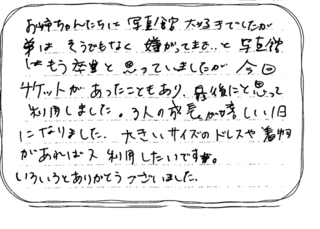 お姉ちゃんたちは 写真館 大好きでしたが
弟は そうでもなく 嫌がってまで…と 写真館
はもう卒業と思っていましたが 今回
チケットがあったこともあり、最後にと思って
利用しました。3人の成長が嬉しい1日
になりました。大きいサイズのドレスや着物
があれば又 利用したいです。
いろいろとありがとうございました。